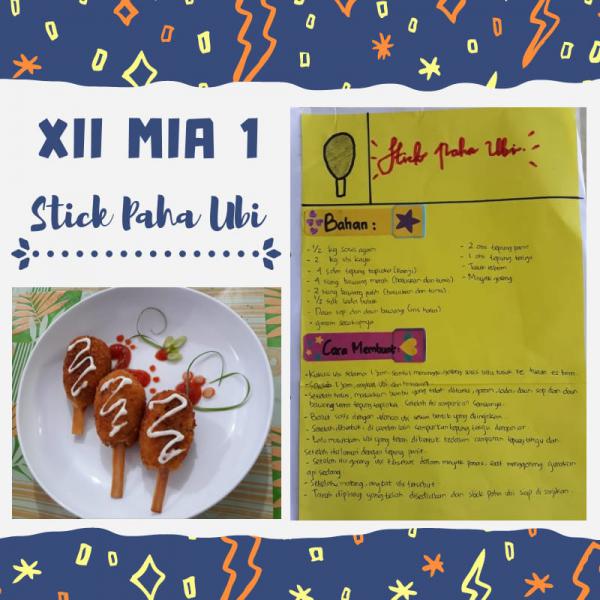 XII MIA 1
Stick Paha Ubi
Stick Paha Ubi.
Bahan:
- 1/2 kg sosis ayam
- 2 kg ubi kayu
- 4 sdm tepung tapioka (kanji)
- 4 siung bawang merah (haluskan dan tumis)
- 2 siung bawang putih (haluskan dan tumis)
- 1/2 sdt lada bubuk
- Daun sop dan daun bawang (iris halus)
- garam secukupnya
- 2 ons tepung panir
- 1 ons tepung terigu
- Tusuk es krim
- Minyak goreng
Cara Membuat:
- Kukus ubi selama 1 jam sambil menunggu goreng sosis lalu tusuk ke tusuk es krim.
- Setelah 1 jam, angkat ubi dan
- Setelah halus, masukkan bumbu yang telah ditumis, garam, lada, daun sop dan daun
bawang serta tepung tapioka. Setelah itu campurkan semuanya.
- Balut sosis dengan adonan ubi sesuai bentuk yang diinginkan.
- Setelah dibentuk, di wadah lain campurkan tepung terigu dengan air.
- Lalu masukkan ubi yang telah dibentuk kedalam campuran tepung terigu dan
setelah itu lumuri dengan tepung panir.
- Setelah itu goreng ubi tersebut dalam minyak panas, saat menggoreng gunakan
api sedang.
- Setelah matang, angkat ubi tersebut
- Taruh dipiring yang telah disediakan dan stick paha ubi siap di sajikan.